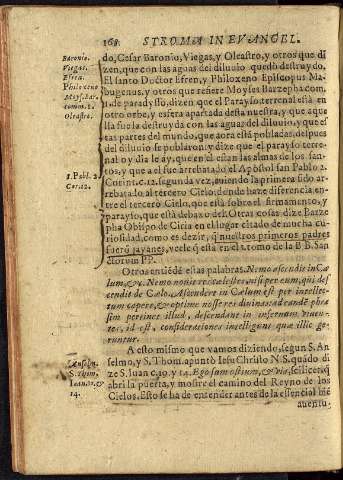 168 STROMA IN EVANGEL.
Baronio.
Viegas.
Efren.
Philoxeno
Moyses Bar.
comm. 2.
Oleastro.
do, Cesar Baronio, Viegas, y Oleastro, y otros que di
zen, que con las aguas del diluuio quedò destruydo.
El santo Doctor Efren, y Philoxeno Episcopus Ma-
bugenus, y otros que refiere Moyses Barzepha com.
2. de paradysso, dizen que el Parayso terrenal està en
otro orbe, y esfera apartada desta nuestra, y que aque
lla fue la destruyda con las aguas del diluuio, y que es
tas partes del mundo, que aora està pobladas, despues
del diluuio se poblaron; y dize que el parayso terre-
nal oy dia le ay, que en el estàn las almas de los san-
1. Pabl. 2.
Cor. 12.
tos, y que a el fue arrebatado el Apostol san Pablo 2.
Corint. c. 12. segunda vez, auiendo la primera sido ar-
rebatado al tercero Cielo, siendo haze diferencia entre
el tercero Cielo, que està sobre el firmamento, y
parayso, que està debaxo del. Otras cosas dize Barze
pha Obispo de Cicia en el lugar citado de mucha cu
riosidad, como es dezir, q̃ nuestros primeros padres
fuerõ jayanes, veelo q̃ està en el tomo de la B B. San
ctorum PP.
Otros entiẽdẽ estas palabras. Nemo ascendit in Cœ
lum, &c. Nemo nouit res cælestres, nisi per eum, qui des
cendit de Cælo, Ascendere in Cælum est per intellec
tum capere, & optime nosse res diuinas ad eandẽ phra
sim pertinet illud, descendant in infernum viuen-
tes, id est, consideratione intelligunt quæ illic ge-
runtur.
Anselm.
S. Thom.
Ioan. 10. &
14.
A esto mismo que vamos diziendo, segun S. An
selmo, y S. Thom. apuntò Iesu Christo N. S. quãdo di
ze S. Iuan c. 10. y 14. Ego sum ostium, & via, scilicet, q̃
abri la puerta, y mostre el camino del Reyno de los
Cielos. Esto se ha de entender antes de la essencial bie
auentu,